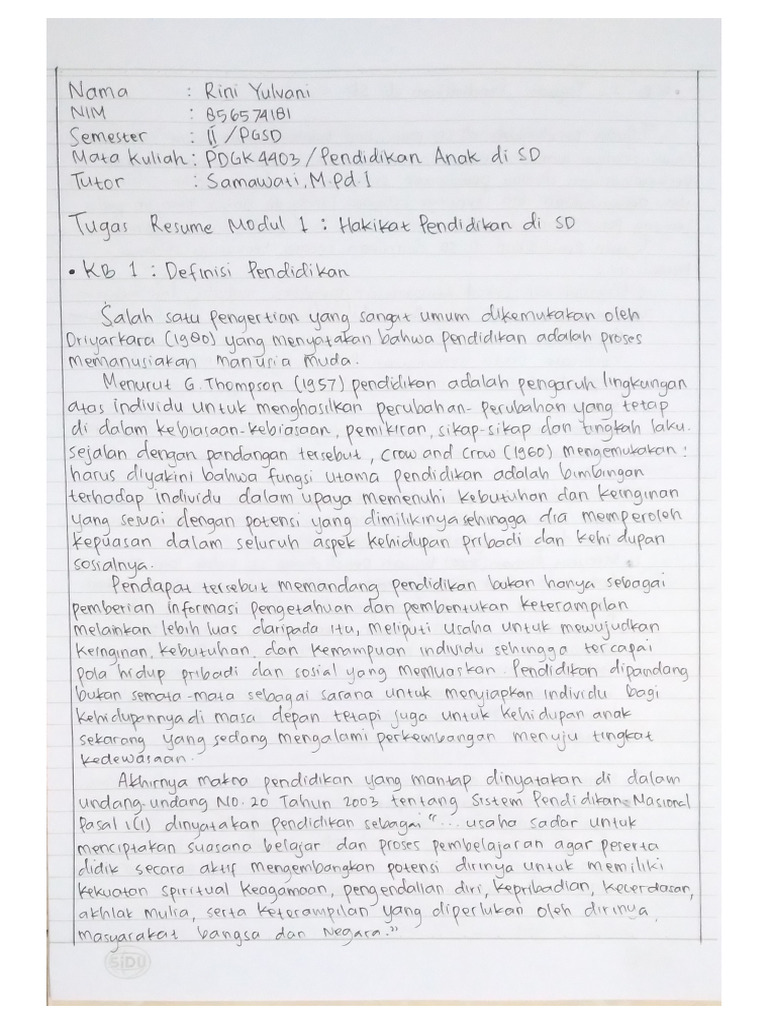 Nama : Rini Yulvani
NIM : 856574181
Semester : II / PGSD
Mata Kuliah : PDGK4403 / Pendidikan Anak di SD
Tutor : Samawati, M.Pd.I
Tugas Resume Modul 1 : Hakikat Pendidikan di SD
• KB 1 : Definisi Pendidikan
Salah satu pengertian yang sangat umum dikemukakan oleh
Driyarkara (1980) yang menyatakan bahwa pendidikan adalah proses
memanusiakan manusia muda.
Menurut G. Thompson (1957) pendidikan adalah pengaruh lingkungan
atas individu untuk menghasilkan perubahan-perubahan yang tetap
di dalam kebiasaan-kebiasaan, pemikiran, sikap-sikap dan tingkah laku.
Sejalan dengan pandangan tersebut, Crow and Crow (1960) mengemukakan :
harus diyakini bahwa fungsi utama pendidikan adalah bimbingan
terhadap individu dalam upaya memenuhi kebutuhan dan keinginan
yang sesuai dengan potensi yang dimilikinya sehingga dia memperoleh
kepuasan dalam seluruh aspek kehidupan pribadi dan kehidupan
sosialnya.
Pendapat tersebut memandang pendidikan bukan hanya sebagai
pemberian informasi pengetahuan dan pembentukan keterampilan
melainkan lebih luas daripada itu, meliputi usaha untuk mewujudkan
keinginan, kebutuhan, dan kemampuan individu sehingga tercapai
pola hidup pribadi dan sosial yang memuaskan. Pendidikan dipandang
bukan semata-mata sebagai sarana untuk menyiapkan individu bagi
kehidupannya di masa depan tetapi juga untuk kehidupan anak
sekarang yang sedang mengalami perkembangan menuju tingkat
kedewasaan.
Akhirnya makna pendidikan yang mantap dinyatakan di dalam
undang-undang No. 20 Tahun 2003 tentang Sistem Pendidikan Nasional
Pasal 1(1) dinyatakan pendidikan sebagai "... usaha sadar untuk
menciptakan suasana belajar dan proses pembelajaran agar peserta
didik secara aktif mengembangkan potensi dirinya untuk memiliki
kekuatan spiritual keagamaan, pengendalian diri, kepribadian, kecerdasan,
akhlak mulia, serta keterampilan yang diperlukan oleh dirinya,
masyarakat bangsa dan Negara."
SIDU